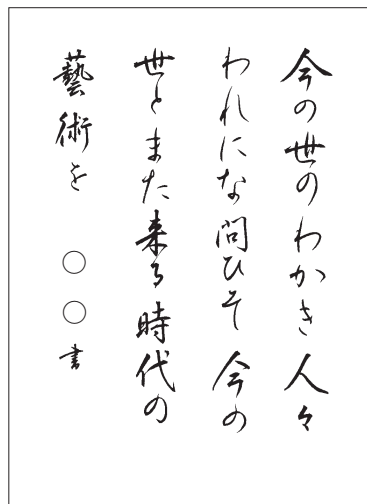 今の世のわかき人々
われにな問ひそ今の
世とまた来る時代の
藝術を　〇〇書